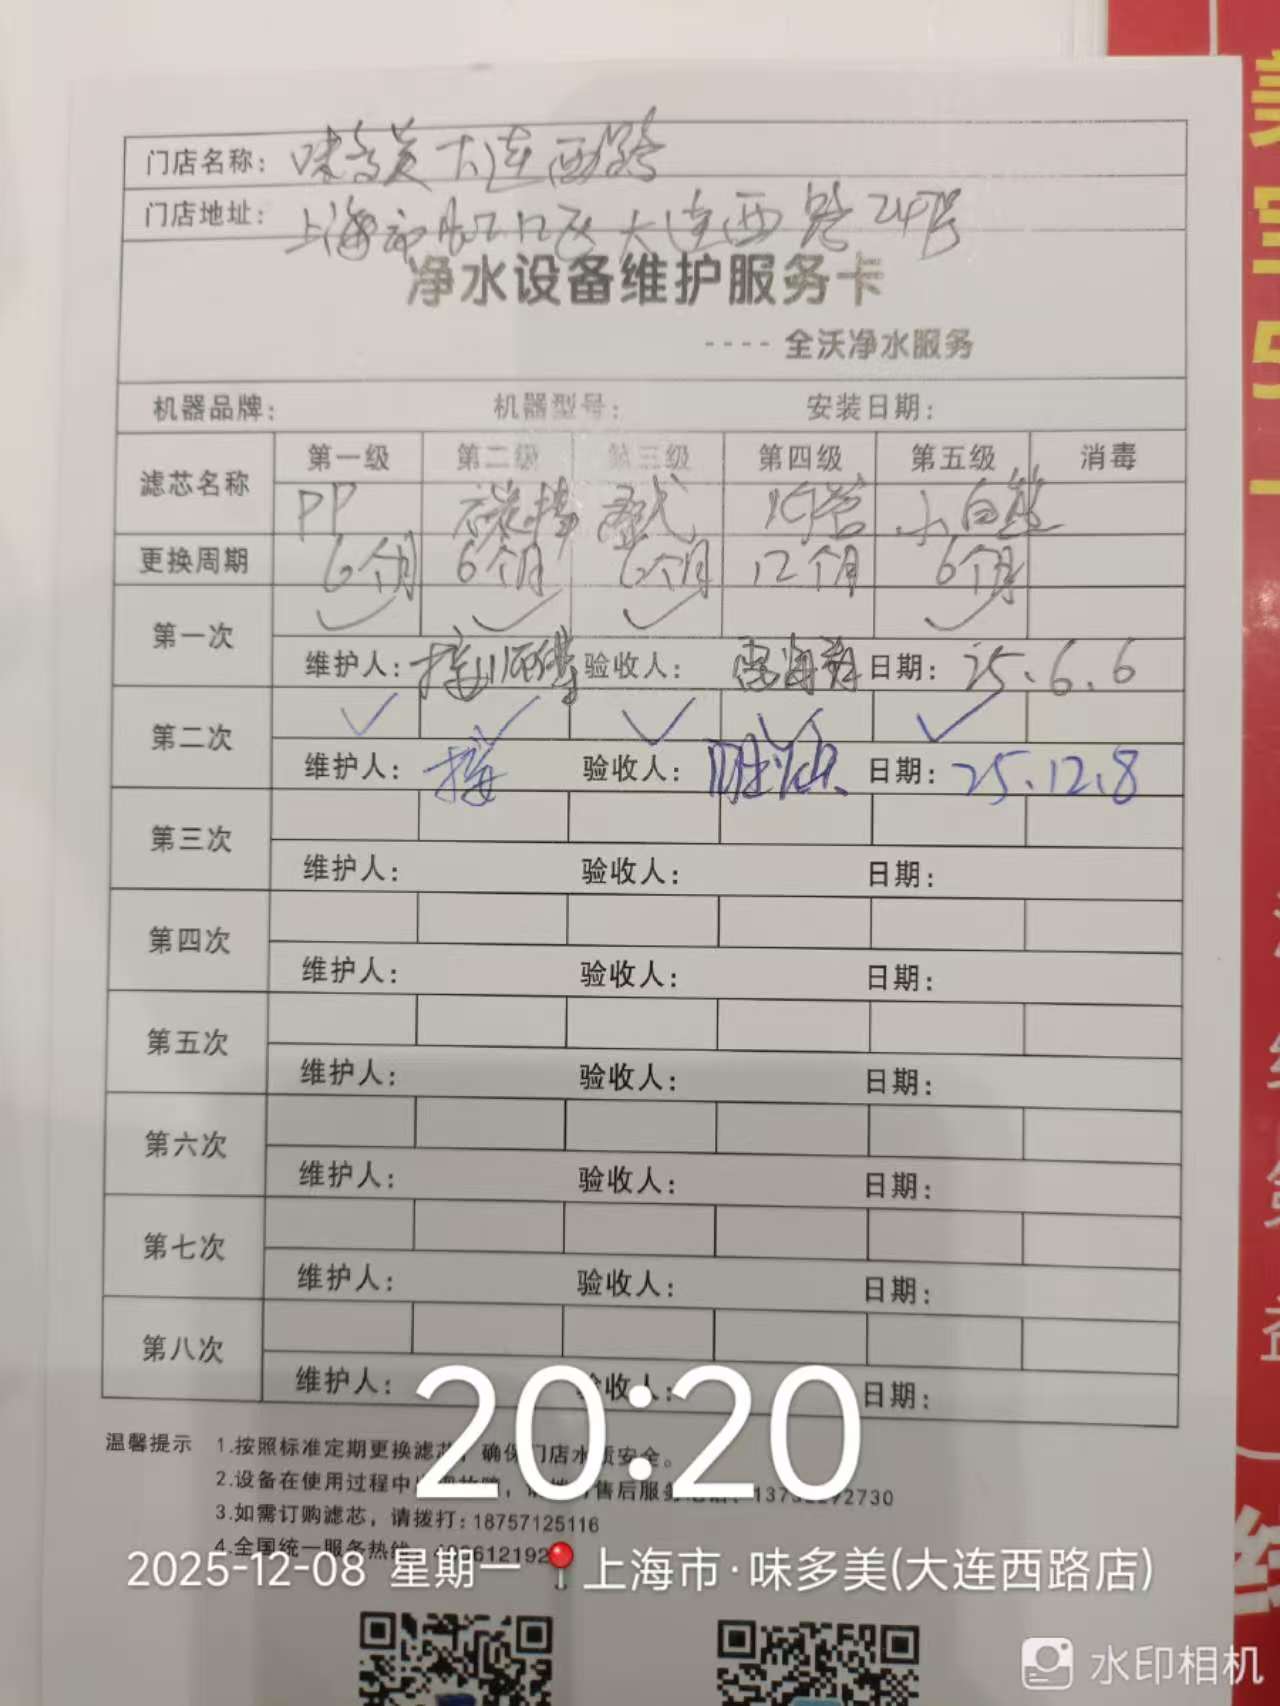 门店名称： 味多美大连西路
门店地址： 上海市虹口区大连西路 号
净水设备维护服务卡
---- 全沃净水服务
机器品牌： 机器型号： 安装日期：
滤芯名称 第一级 第二级 第三级 第四级 第五级 消毒
PP 碳棒 小白鞋
更换周期 6个月 6个月 6个月 12个月 6个月
第一次 ✓ ✓ ✓ ✓
维护人： 验收人： 日期：25.6.6
第二次 ✓ ✓ ✓ ✓ ✓
维护人： 验收人： 日期：25.12.8
第三次
维护人： 验收人： 日期：
第四次
维护人： 验收人： 日期：
第五次
维护人： 验收人： 日期：
第六次
维护人： 验收人： 日期：
第七次
维护人： 验收人： 日期：
第八次
维护人： 验收人： 日期：
20:20
温馨提示 1.按照标准定期更换滤芯，确保门店水质安全。
2.设备在使用过程中 售后服务 2730
3.如需订购滤芯，请拨打：18757125116
4.全国统一服务热线
2025-12-08 星期一 上海市·味多美(大连西路店)
水印相机